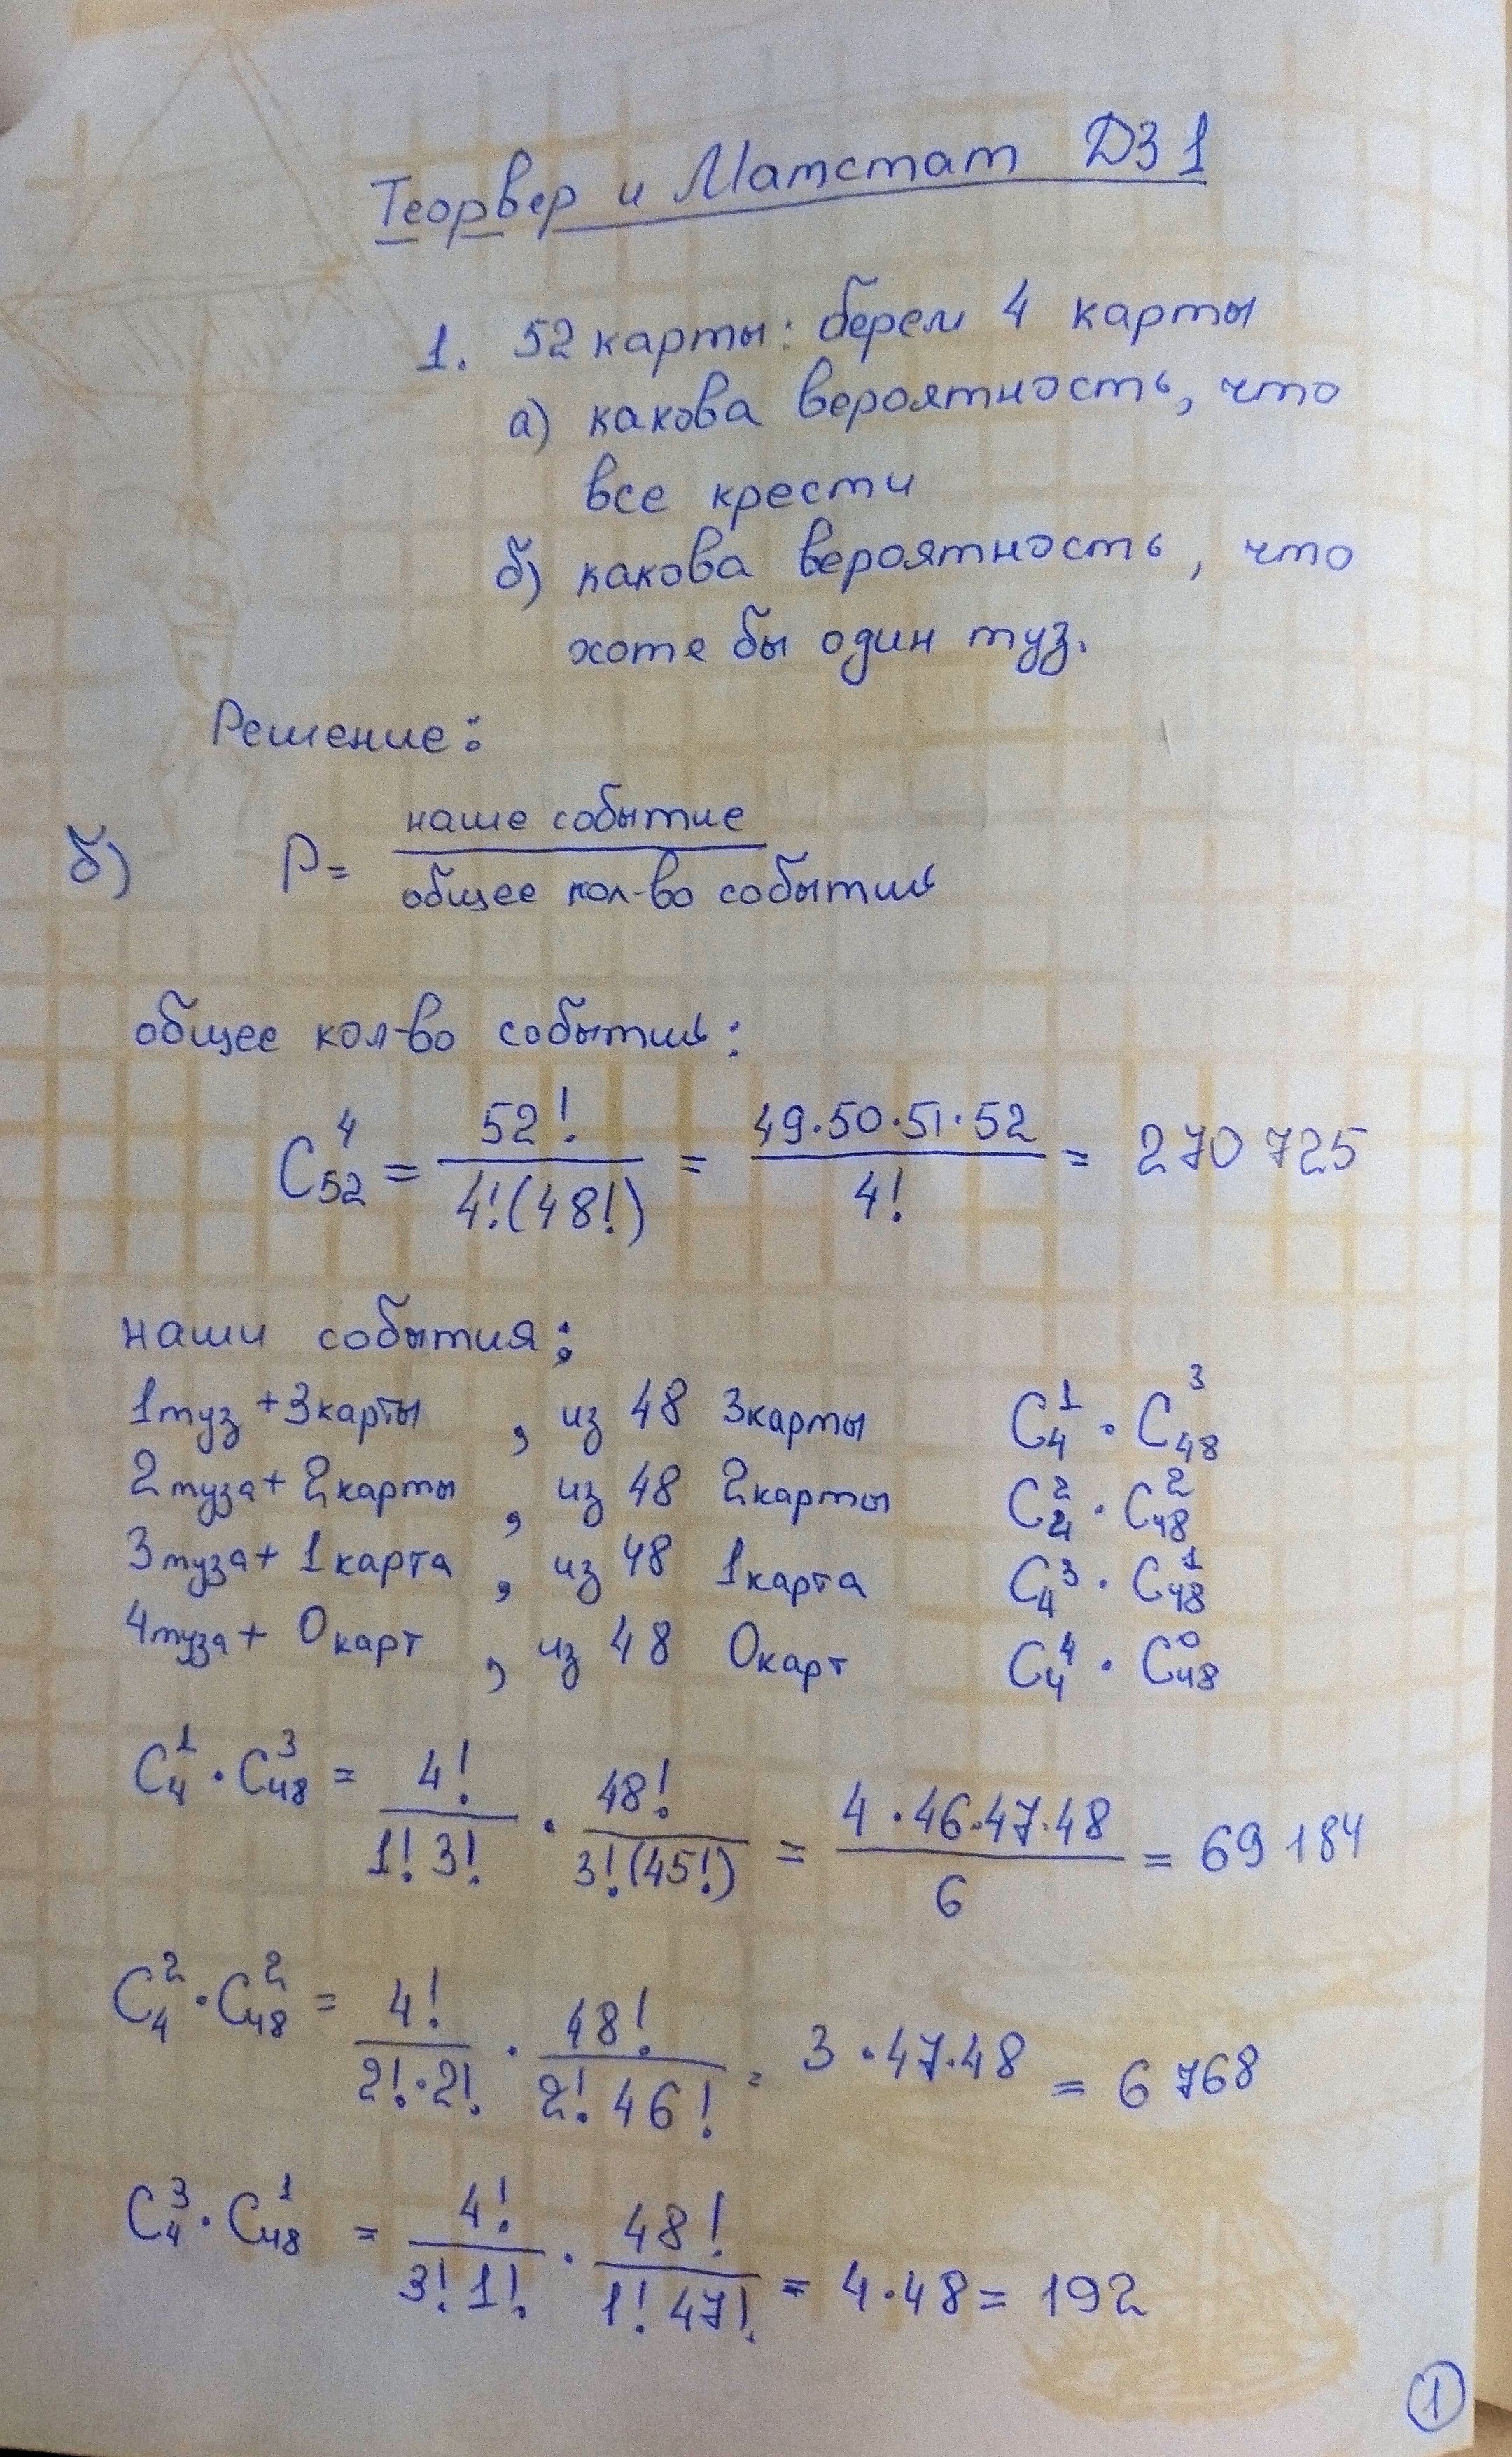 Теорвер и Матстат ДЗ 1
1. 52 карты: берем 4 карты
а) какова вероятность, что
все крести
б) какова вероятность, что
хотя бы один туз.
Решение:
б) P = наше событие / общее кол-во событий
общее кол-во событий:
C₅₂⁴ = 52! / 4!(48!) = 49·50·51·52 / 4! = 270 725
наши события:
1туз + 3карты , из 48 3карты C₄¹ · C₄₈³
2туза + 2карты , из 48 2карты C₄² · C₄₈²
3туза + 1карта , из 48 1карта C₄³ · C₄₈¹
4туза + 0карт , из 48 0карт C₄⁴ · C₄₈⁰
C₄¹ · C₄₈³ = 4! / 1! 3! · 48! / 3!(45!) = 4·46·47·48 / 6 = 69 184
C₄² · C₄₈² = 4! / 2!·2! · 48! / 2! 46! = 3·47·48 = 6 768
C₄³ · C₄₈¹ = 4! / 3! 1! · 48! / 1! 47! = 4·48 = 192
1